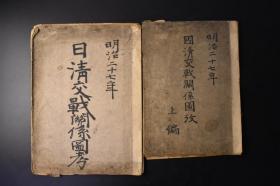 明治二十七年
日清交戰關係圖考
明治二十七年
國清交戰關係圖攷
上編